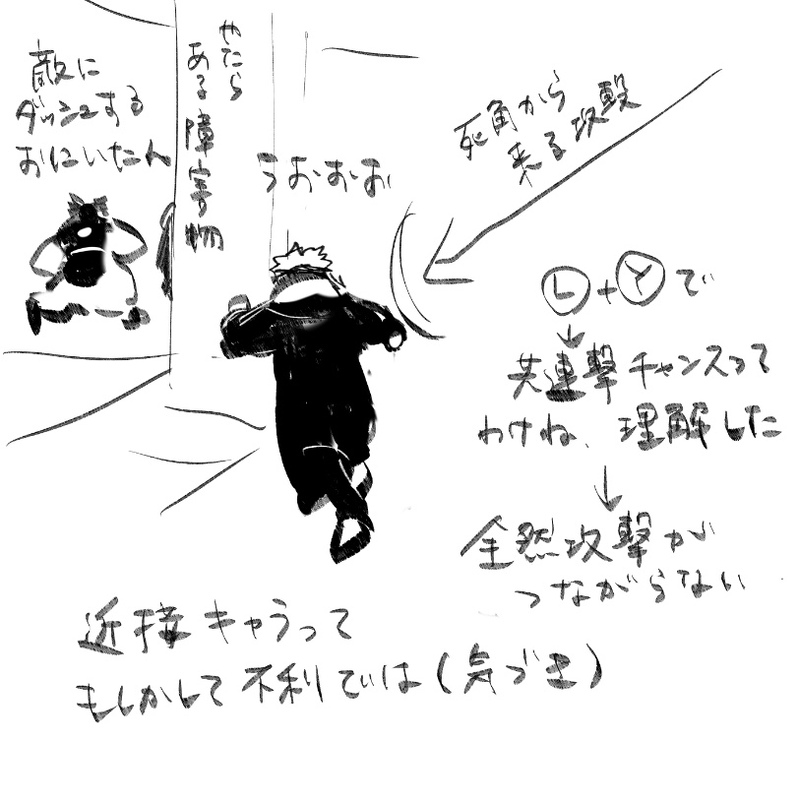 敵に
ダッシュする
おにいたん
やたら
ある障害物
うおおお
死角から
来る攻撃
L+Yで
↓
共連撃チャンスって
わけね、理解した
↓
全然攻撃が
つながらない
近接キャラって
もしかして不利では(気づき)